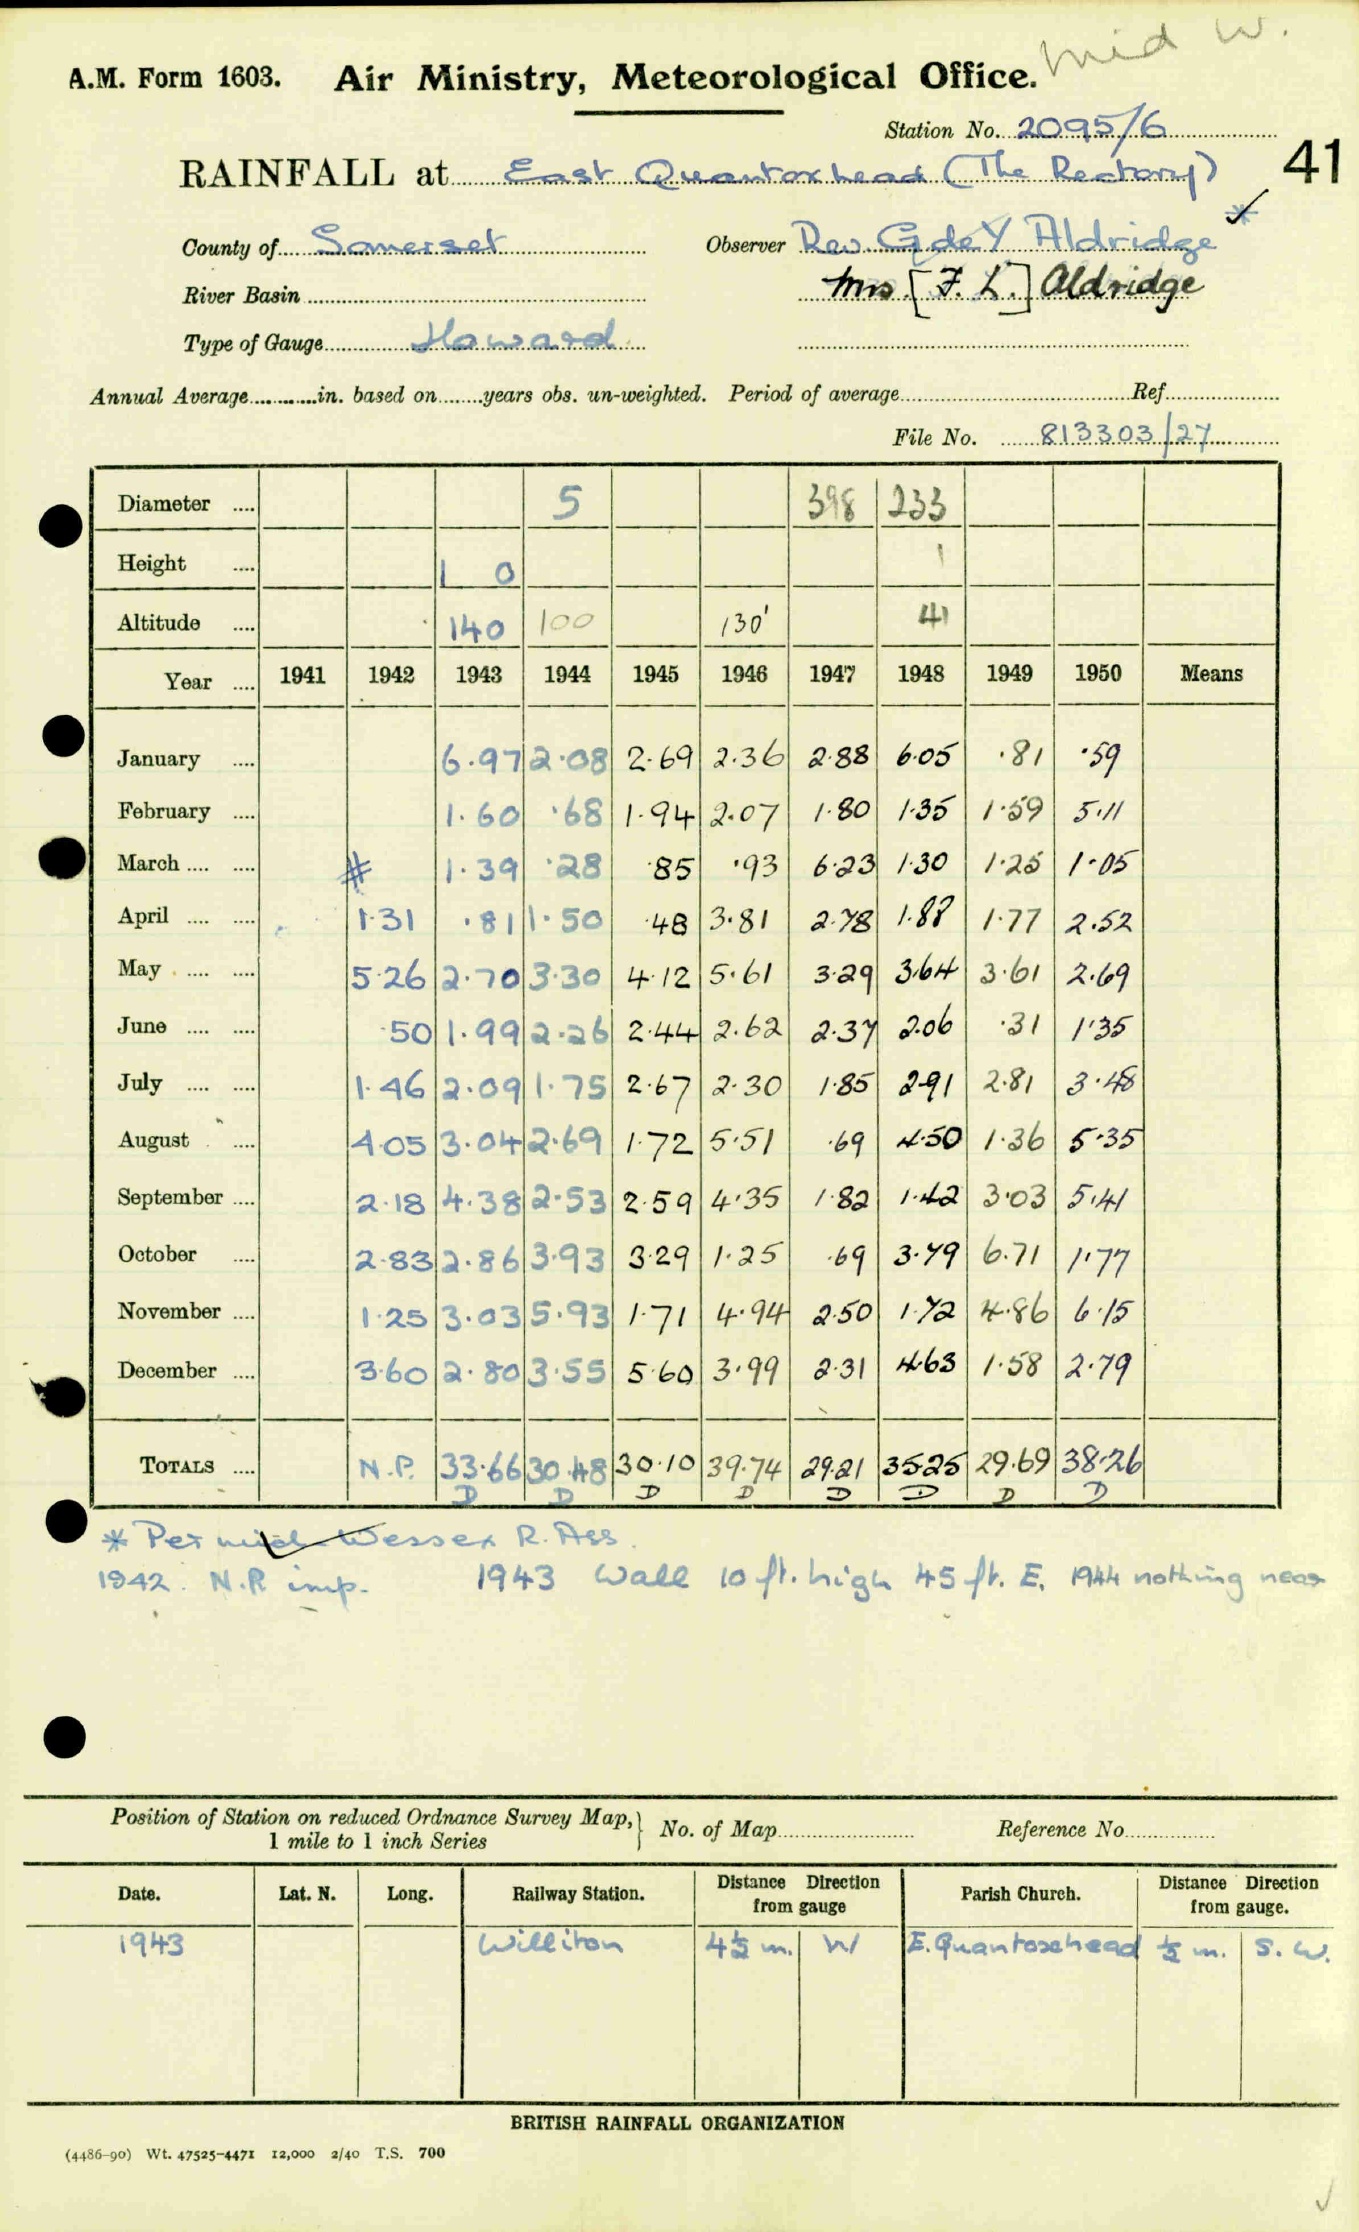 mid W.
A.M. Form 1603. Air Ministry, Meteorological Office.
Station No. 2095/6
41
RAINFALL at East Quantoxhead (The Rectory)
County of Somerset Observer Rev. G de Y Aldridge *
River Basin Mrs. [F. L.] Aldridge
Type of Gauge Howard
Annual Average in. based on years obs. un-weighted. Period of average Ref.
File No. 813303/27
Diameter 5 398 233
Height 1 0 1
Altitude 140 100 130' 41
Year 1941 1942 1943 1944 1945 1946 1947 1948 1949 1950 Means
January 6.97 2.08 2.69 2.36 2.88 6.05 .81 .59
February 1.60 .68 1.94 2.07 1.80 1.35 1.59 5.11
March # 1.39 .28 .85 .93 6.23 1.30 1.25 1.05
April 1.31 .81 1.50 .48 3.81 2.78 1.88 1.77 2.52
May 5.26 2.70 3.30 4.12 5.61 3.29 3.64 3.61 2.69
June .50 1.99 2.26 2.44 2.62 2.37 2.06 .31 1.35
July 1.46 2.09 1.75 2.67 2.30 1.85 2.91 2.81 3.48
August 4.05 3.04 2.69 1.72 5.51 .69 4.50 1.36 5.35
September 2.18 4.38 2.53 2.59 4.35 1.82 1.42 3.03 5.41
October 2.83 2.86 3.93 3.29 1.25 .69 3.79 6.71 1.77
November 1.25 3.03 5.93 1.71 4.94 2.50 1.72 4.86 6.15
December 3.60 2.80 3.55 5.60 3.99 2.31 4.63 1.58 2.79
TOTALS N.P. 33.66 30.48 30.10 39.74 29.21 35.25 29.69 38.26
D D D D D D D D
* Per mid Wessex R. Ass.
1942. N.P. imp. 1943 Wall 10 ft. high 45 ft. E. 1944 nothing near
Position of Station on reduced Ordnance Survey Map, } No. of Map Reference No
1 mile to 1 inch Series
Date. Lat. N. Long. Railway Station. Distance Direction from gauge Parish Church. Distance Direction from gauge.
1943 Williton 4½ m. W E. Quantoxhead ½ m. S. W.
BRITISH RAINFALL ORGANIZATION
(4486-90) Wt. 47525-4471 12,000 2/40 T.S. 700